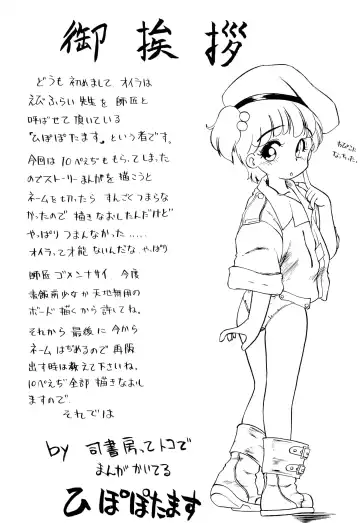 御挨拶
どうも 初めまして オイラは
えびふらい先生を 師匠と
呼ばせて頂いている
「ひぽぽたます」という者です。
今回は 10ぺえぢももらってしまった
のでストーリーまんがを描こうと
ネームを切ったら すんごくつまらな
かったので 描きなおしたんだけど
やっぱり つまんなかった.....
オイラって才能 ないんだな やっぱり
師匠 ゴメンナサイ 今度
美少女か天地無用の
ボード描くから許してね。
それから 最後に 今から
ネームはぢめるので 再販
出す時は教えて下さいね。
10ぺえぢ全部 描きなおし
ますので
それでは
by 司書房ってトコで
まんがかいてる
ひぽぽたます
なっちった.